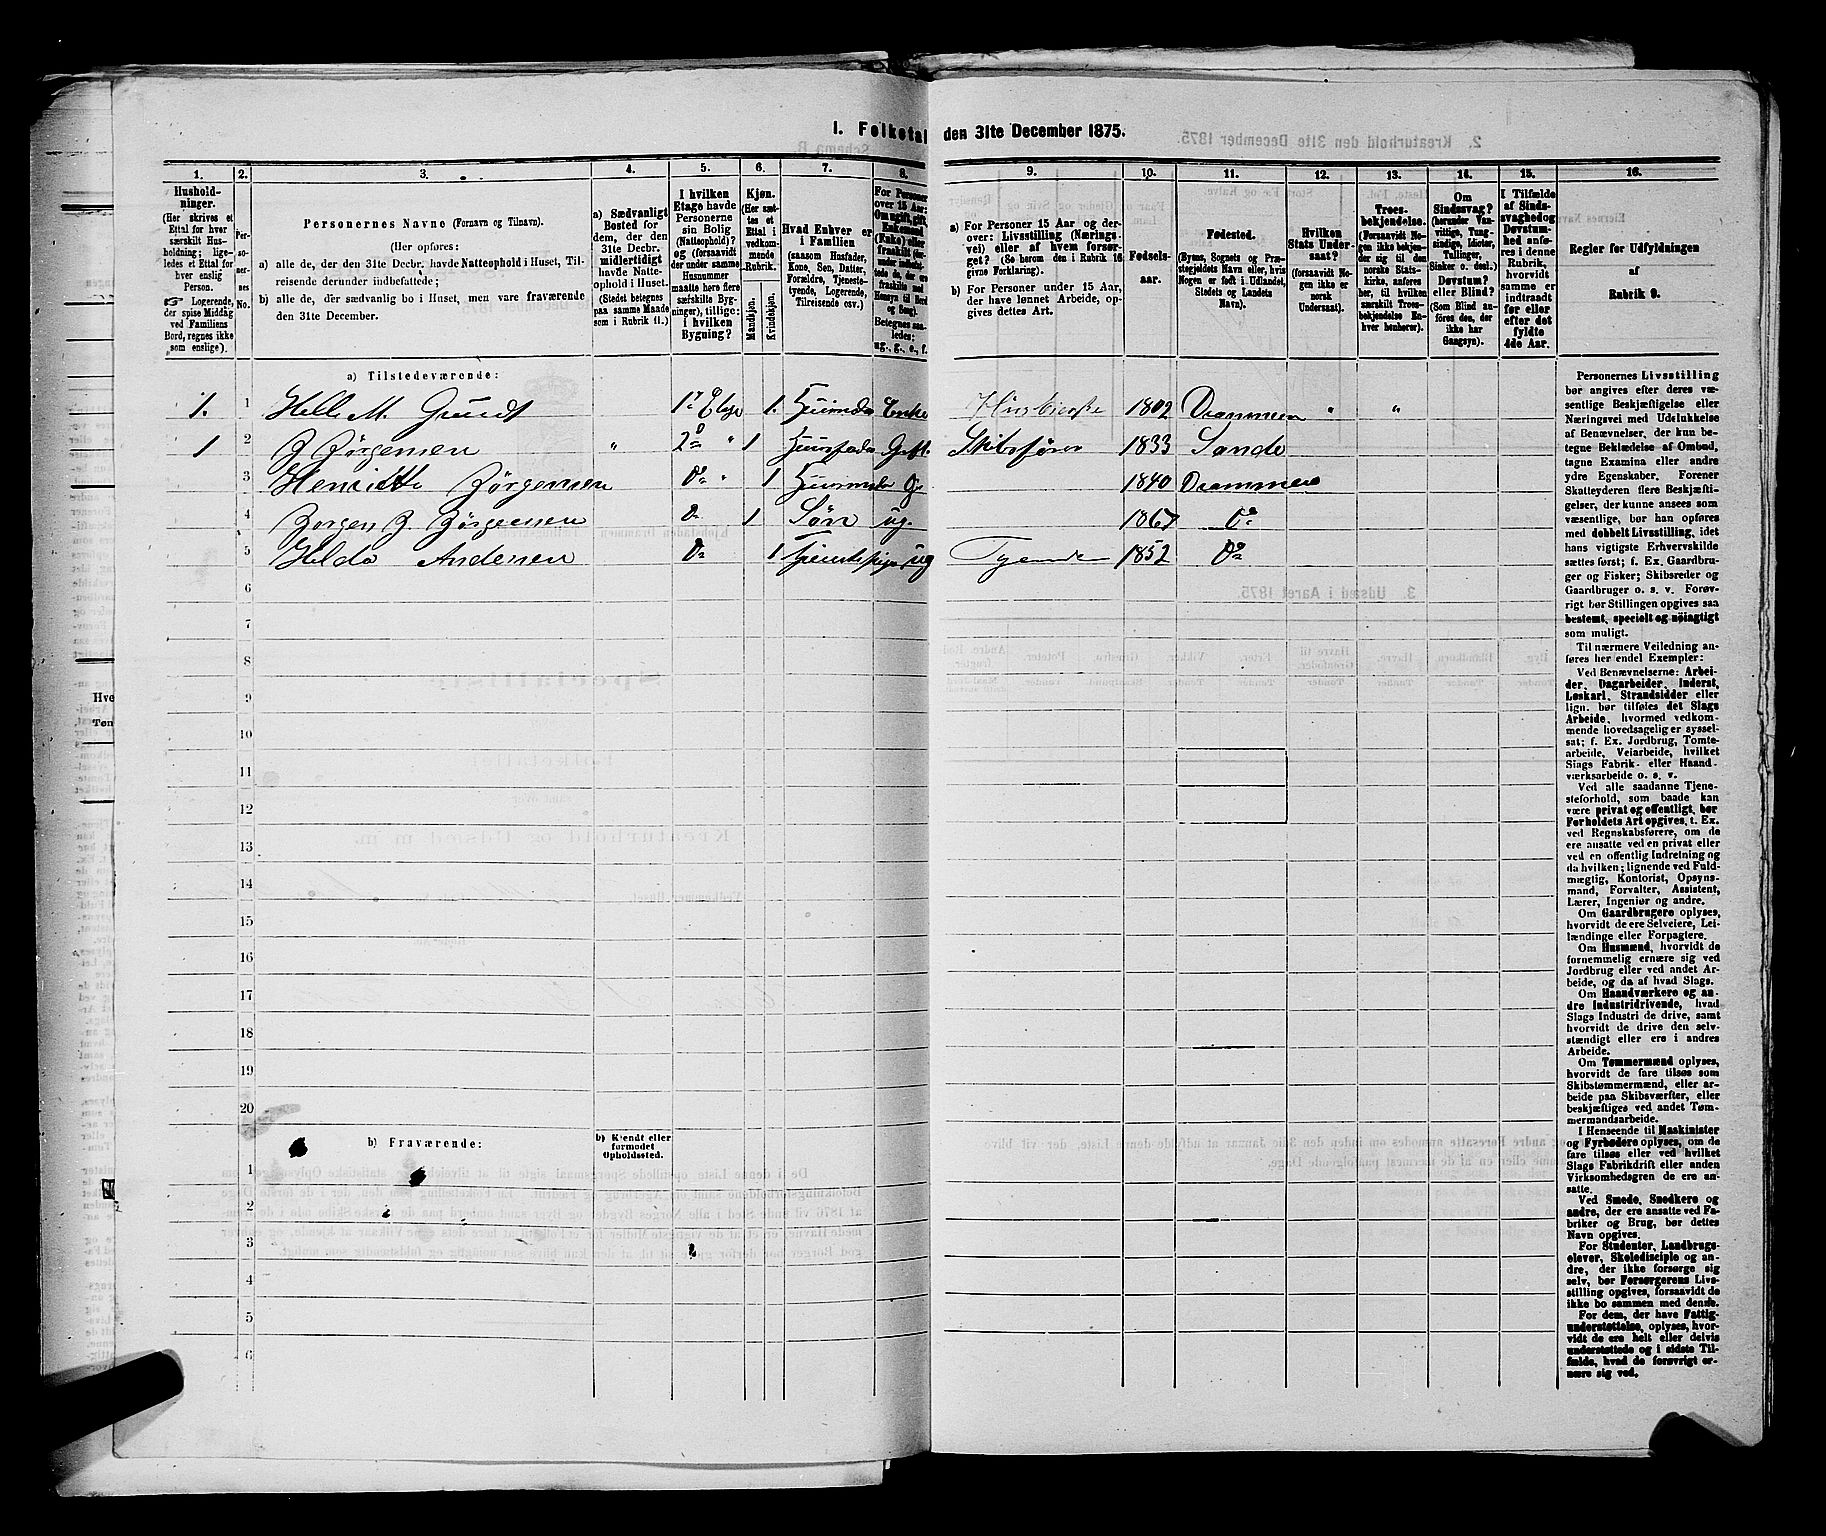 1. Folketal den 31te December 1875.
1. 2. 3. 4. 5. 6. 7. 8. 9. 10. 11. 12. 13. 14. 15. 16.
Hushold-
ninger.
(Her skrives et
Ettal for hver
særskilt Hus-
holdning; lige-
ledes et Ettal for
hver enslig
Person.
☞ Logerende,
der spise Middag
ved Familiens
Bord, regnes ikke
som enslige).
Per-
so-
ner-
nes
No.
Personernes Navne (Fornavn og Tilnavn).
(Her opføres:
a) alle de, der den 31te Decbr. havde Natteophold i Huset, Til-
reisende derunder indbefattede;
b) alle de, der sædvanlig bo i Huset, men vare fraværende
den 31te December.
a) Sædvanligt
Bosted for
dem, der den
31te Decbr.
midlertidigt
havde Natte-
ophold i Huset.
(Stedet betegnes
paa samme Maade
som i Rubrik 11.)
I hvilken
Etage havde
Personerne
sin Bolig
(Natteophold)?
og (forsaavidt
der under samme
Husnummer
maatte høre flere
særskilte Byg-
ninger), tillige:
i hvilken
Bygning?
Kjøn.
(Her sæt-
tes et
Ettal i
vedkom-
mende
Rubrik.
Mandskjøn.
Kvindekjøn.
Hvad Enhver er
i Familien
(saasom Husfader,
Kone, Søn, Datter,
Forældre, Tjeneste-
tyende, Logerende,
Tilreisende osv.)
For Personer
over 15 Aar:
Om ugift, gift,
Enkemand
(Enke) eller
fraskilt
Betegnes saa-
ledes:
ug., g., e., f.
a) For Personer 15 Aar og der-
over: Livsstilling (Nærings-
vei) eller af hvem forsør-
get? (Se herom den i Rubrik 16
givne Forklaring).
b) For Personer under 15 Aar,
der have lønnet Arbeide, op-
gives dettes Art.
Fødsels-
aar.
Fødested.
(Byens, Sognets og Præ-
stegjeldets Navn eller, hvis
Nogen er født i Udlandet,
Stedets og Landets
Navn).
Hvilken
Stats Under-
saat?
(forsaavidt No-
gen ikke er
norsk
Undersaat).
Troes-
bekjendelse.
(Forsaavidt No-
gen ikke bekjen-
der sig til den
norske Stats-
kirke, anføres
her, til hvilken
særskilt Troes-
bekjendelse En-
hver henhører).
Om
Sindssvag?
(herunder Van-
vittige, Tung-
sindige, Idioter,
Tullinger,
Sinker o. desl.)
Døvstum?
eller Blind?
(Som Blind an-
føres den, der
ikke har
Gangsyn).
I Tilfælde
af Sinds-
svaghed og
Døvstum-
hed anfø-
res i denne
Rubrik,
hvorvidt
samme er
indtraadt
før eller
efter det
fyldte
4de Aar.
Regler for Udfyldningen
af
Rubrik 9.
a) Tilstedeværende:
1. 1 Helle M. Grundt 1ste Etage 1. Enke 1802 Drammen " "
1 2 J Jørgensen " 2d " 1 Husfader Gift. Skibsfører 1833 Sande
3 Henriette Jørgensen Do " 1 G 1840 Drammen
4 Jørgen J. Jørgensen Do 1 Søn ug. 1867 Do
5 Helda Andersen Do 1 Tjenestepige ug Tyende 1852 Do
6
7
8
9
10
11
12
13
14
15
16
17
18
19
20
b) Fraværende:
b) Kjendt eller
formodet
Opholdssted.
1
2
3
4
5
6
Personernes Livsstilling
bør angives efter deres væ-
sentlige Beskjæftigelse eller
Næringsvei med Udelukkelse
af Benævnelser, der kun be-
tegne Beklædelse af Ombud,
tagne Examina eller andre
ydre Egenskaber. Forener
Skatteyderen flere Beskjæfti-
gelser, der kunne ansees som
væsentlige, bør han opføres
med dobbelt Livsstilling, idet
hans vigtigste Erhvervskilde
sættes først; f. Ex. Gaardbru-
ger og Fisker; Skibsreder og
Gaardbruger o. s. v. Forøv-
rigt bør Stillingen opgives saa
bestemt, specielt og nøiagtigt
som muligt.
Til nærmere Veiledning an-
føres her endel Exempler:
Ved Benævnelserne: Arbei-
der, Dagarbeider, Inderst,
Løskarl, Strandsidder eller
lign. bør tilføies det Slags
Arbeide, hvormed vedkom-
mende hovedsagelig er syssel-
sat; f. Ex. Jordbrug, Tomte-
arbeide, Veiarbeide, hvilket
Slags Fabrik- eller Haand-
værksarbeide o. s. v.
Ved alle saadanne Tjene-
steforhold, som baade kan
være privat og offentligt, bør
Forholdets Art opgives, t. Ex.
ved Regnskabsførere, om de
ere ansatte ved en privat eller
ved en offentlig Indretning og
da hvilken; lignende ved Fuld-
mægtig, Kontorist, Opsyns-
mand, Forvalter, Assistent,
Lærer, Ingeniør og andre.
Om Gaardbrugere oplyses,
hvorvidt de ere Selveiere, Lei-
lændinge eller Forpagtere.
Om Husmænd, hvorvidt de
fornemmelig ernære sig ved
Jordbrug eller ved andet Ar-
beide, og da af hvad Slags.
Om Haandværkere og an-
dre Industridrivende, hvad
Slags Industri de drive, samt
hvorvidt de drive den selv-
stændigt eller ere i andres
Arbeide.
Om Tømmermænd oplyses,
hvorvidt de fare tilsøs som
Skibstømmermænd, eller ar-
beide paa Skibsværfter, eller
beskjæftiges ved andet Tøm-
mermandsarbeide.
I Henseende til Maskinister
og Fyrbødere oplyses, om de
fare tilsøs eller ved hvilket
Slags Fabrikdrift eller anden
Virksomhedsgren de ere an-
satte.
Ved Smede, Snedkere og
andre, der ere ansatte ved Fa-
briker og Brug, bør dettes
Navn opgives.
For Studenter, Landbrugs-
elever, Skoledisciple og an-
dre, der ikke forsørge sig
selv, bør Forsørgerens Livs-
stilling opgives, forsaavidt de
ikke bo sammen med denne.
For dem, der have Fattig-
understøttelse, oplyses, hvor-
vidt de ere helt eller delvis
understøttede og i sidste Til-
fælde, hvad de forøvrigt er-
nære sig ved.